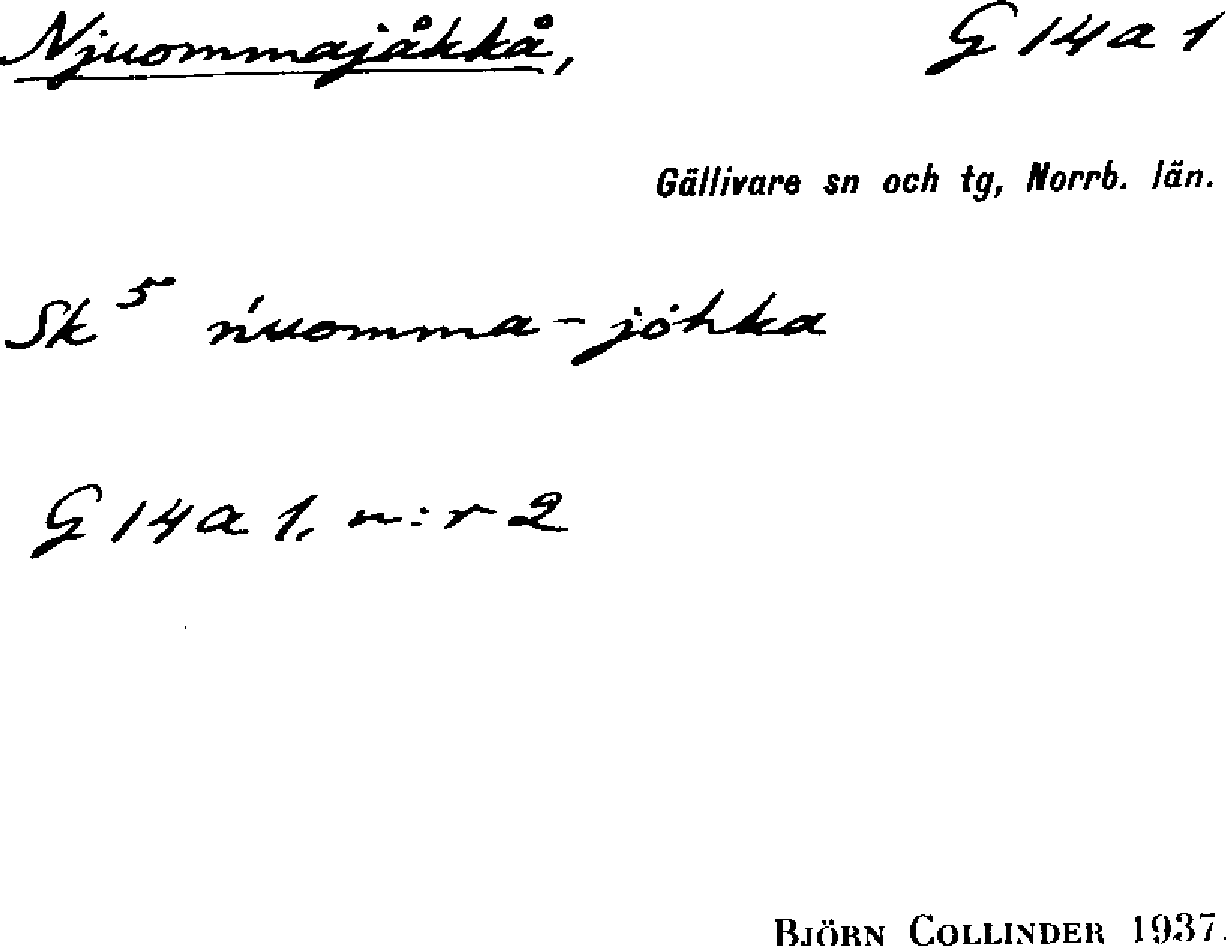 Njuommajåkkå, G 14 a 1
Gällivare sn och tg, Norrb. län.
Sk 5 ńuomma-jȯhka
G 14 a 1, n:r 2
BJÖRN COLLINDER 1937.